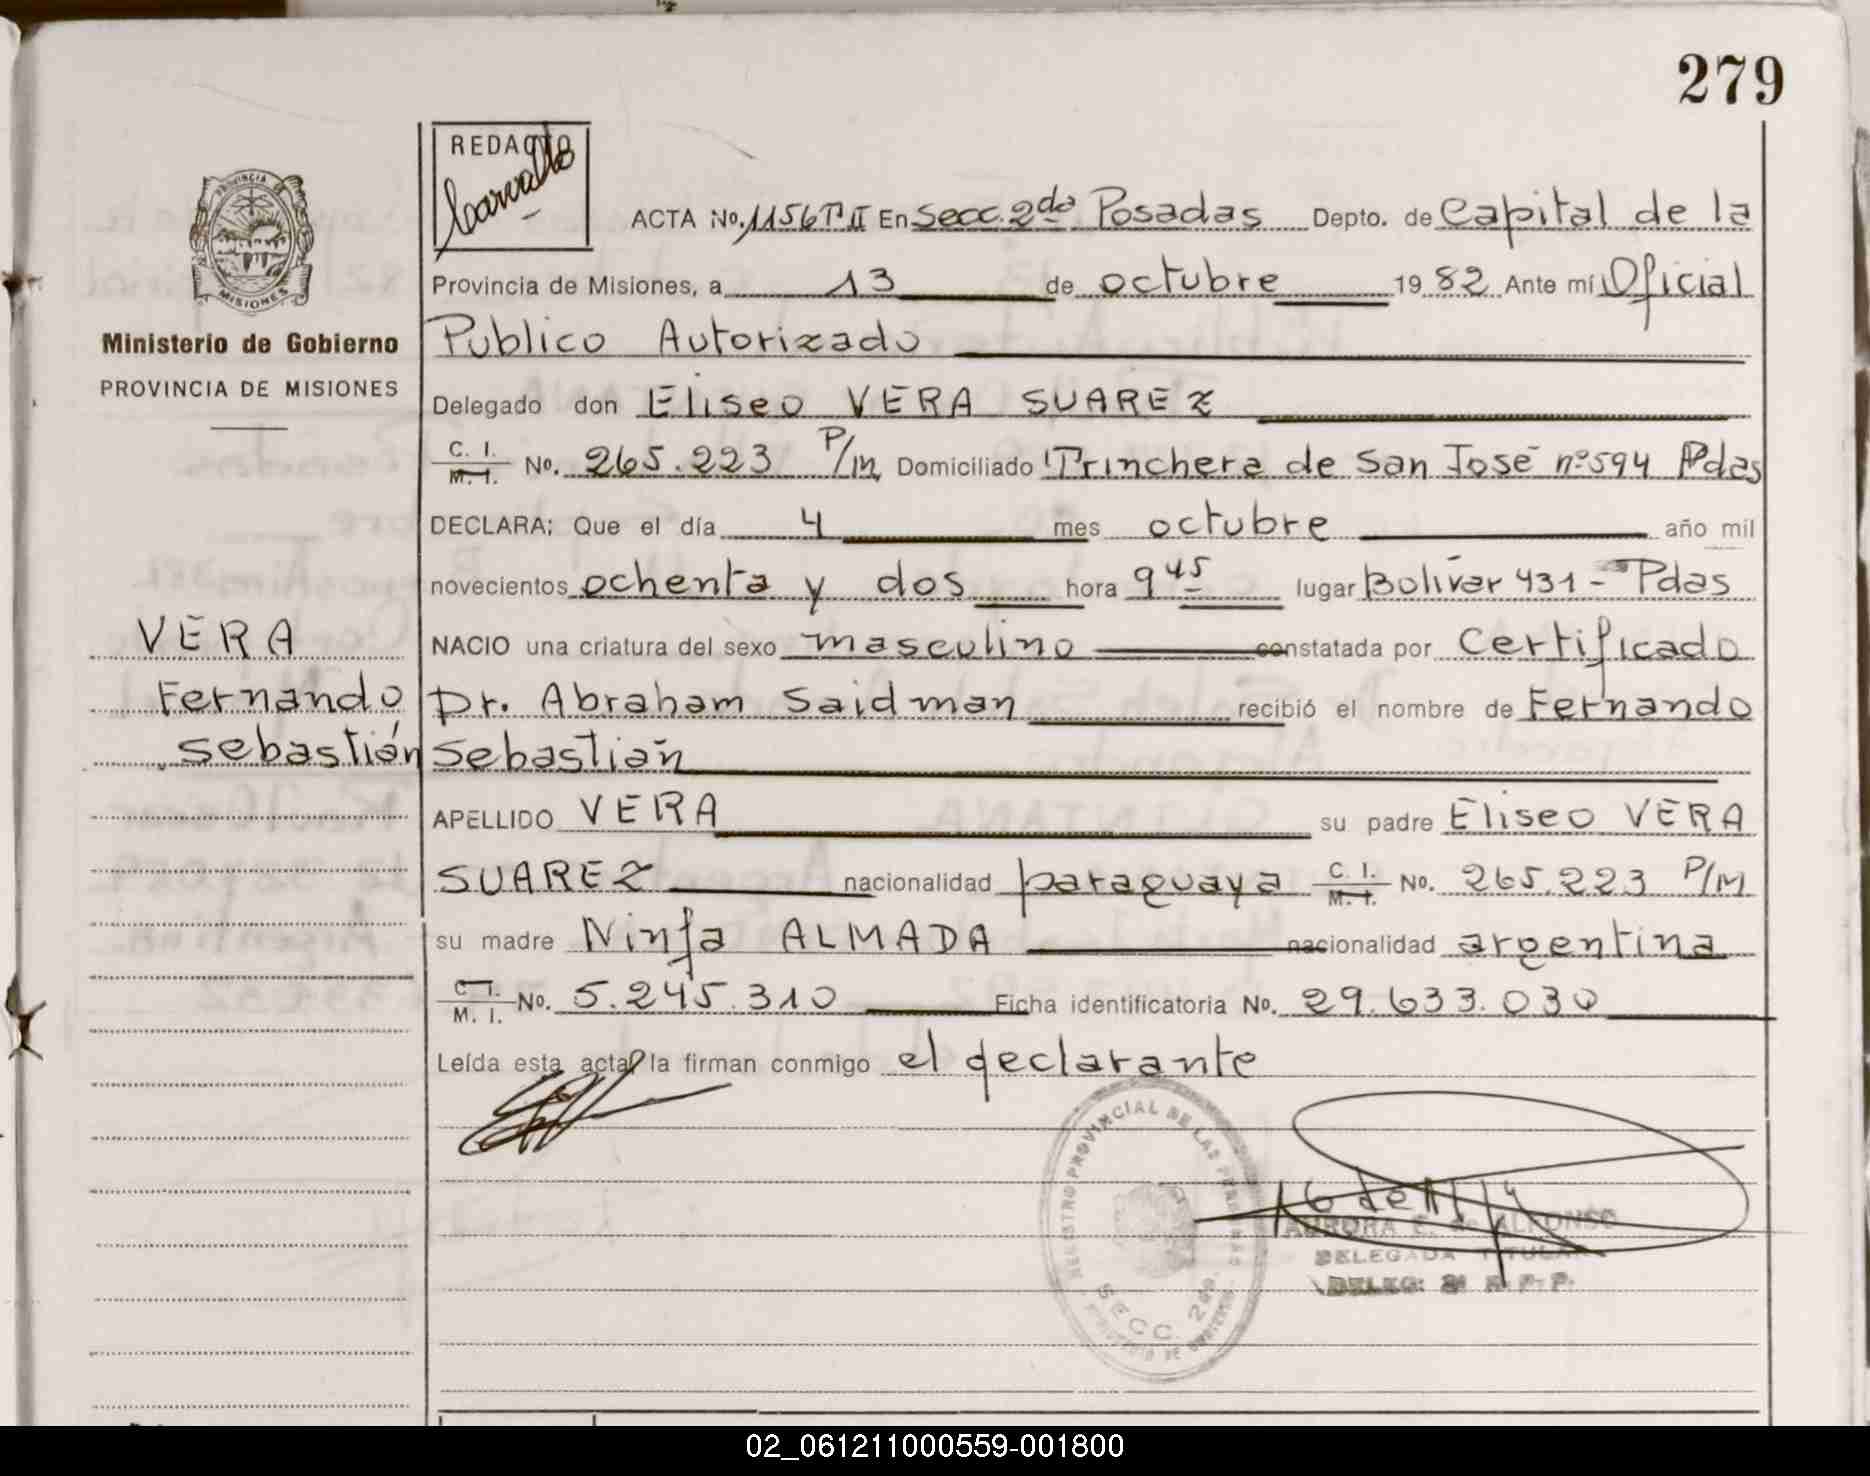 279
REDACTO
Carvallo
PROVINCIA DE
MISIONES
Ministerio de Gobierno
PROVINCIA DE MISIONES
ACTA No. 1156 Tº II En Secc. 2da Posadas Depto. de Capital de la
Provincia de Misiones, a 13 de octubre 19 82 Ante mí Oficial
Publico Autorizado
Delegado don Eliseo VERA SUAREZ
C. I. M. I. No. 265.223 P/M Domiciliado Trinchera de San José nº 594 Pdas
DECLARA: Que el día 4 mes octubre año mil
novecientos ochenta y dos hora 9 45 lugar Bolívar 431 - Pdas
VERA
NACIO una criatura del sexo masculino constatada por Certificado
Fernando
Dr. Abraham Saidman recibió el nombre de Fernando
Sebastián
Sebastián
APELLIDO VERA su padre Eliseo VERA
SUAREZ nacionalidad paraguaya C. I. M. I. No. 265.223 P/M
su madre Ninfa ALMADA nacionalidad argentina
C. I. M. I. No. 5.245.310 Ficha identificatoria No. 29.633.030
Leída esta acta, la firman conmigo el declarante
REGISTRO PROVINCIAL DE LAS PERSONAS
SECC. 2da.
AURORA E. de ALFONSO
DELEGADA TITULAR
DELEG. 2ª R. P. P.
02_061211000559-001800